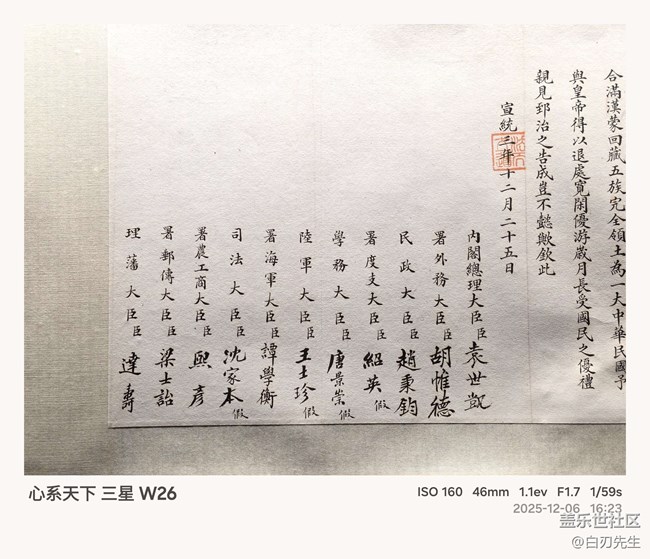 合滿漢蒙回藏五族完全領土為一大中華民國予
與皇帝得以退處寬閑優游歲月長受國民之優禮
親見郅治之告成豈不懿歟欽此
宣統三年十二月二十五日
內閣總理大臣臣袁世凱
署外務大臣臣胡惟德
民政大臣臣趙秉鈞
署度支大臣臣紹英假
學務大臣臣唐景崇假
陸軍大臣臣王士珍假
署海軍大臣臣譚學衡
司法大臣臣沈家本假
署農工商大臣臣熙彥
署郵傳大臣臣梁士詒
理藩大臣臣達壽
心系天下 三星 W26
ISO 160 46mm 1.1ev F1.7 1/59s
2025-12-06 16:23
盖乐世社区
@白刃先生